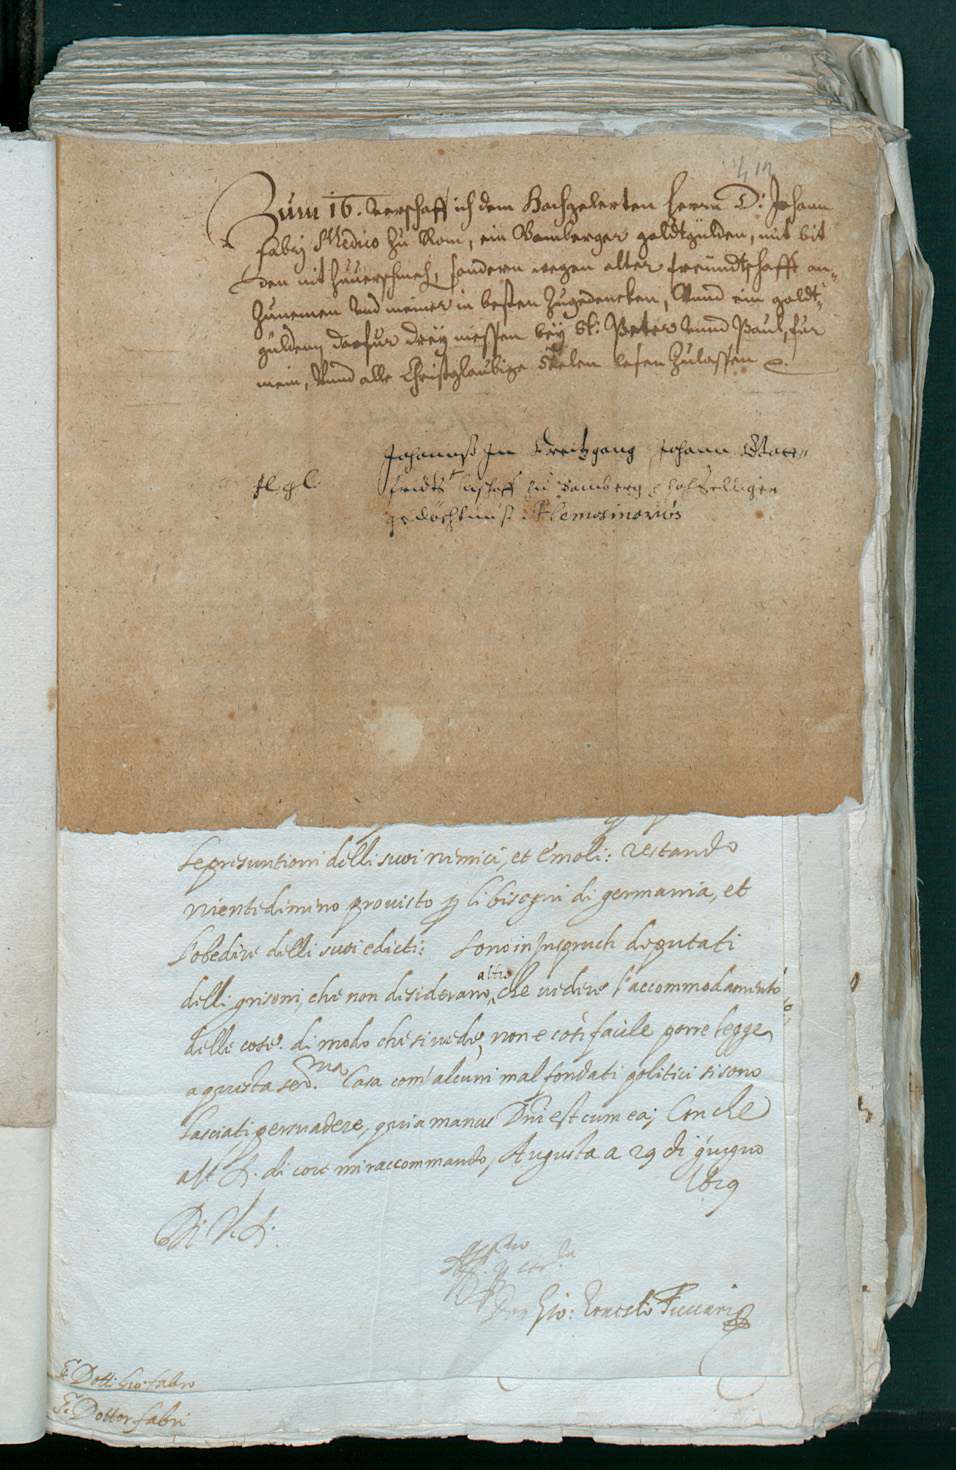 411
Zum 16. verschaff ich dem Hochgelerten Herrn D: Johann
Fabrj Medico zu Rom, ein Bamberger goldtgülden, mit bit
den nit zuuerschmeh, sonderen wegen alter freundtschafft an-
zunemen vnd meiner in besten zugedencken, Vnnd ein goldt-
gulden, darfur dreÿ messen beÿ St: Peter vnnd Paul, fur
mein, Vnnd alle Christglaubige Seelen lesen zulassen
Johannß Im Creitzgang Johann Gott-
fridts bischoff zu Bamberg hochselliger
gedöchtnuß Elemosinarius
le presuntioni delli suoi nemici, et emoli: restando
nientedimeno prouisto p li bisogni di germania, et
l'obedire delli suoi edicti: Sono in Inspruch deputati
delli grisoni, che non desiderano altro che vedere l'accommodamento
delle cose. di modo che si vede, non e così facile porre legge
a questa ser.ma Casa com' alcuni mal fondati politici si sono
lasciati persuadere, quia manus Dni est cum ea; Con che
a V. S. di core mi raccommando, Augusta a 29 di giugno
1629
Di V. S.
Aff.mo
Gio: Ernesto Fuccari
S.r Dott: Gio: Fabro
S.r Dottor Fabri